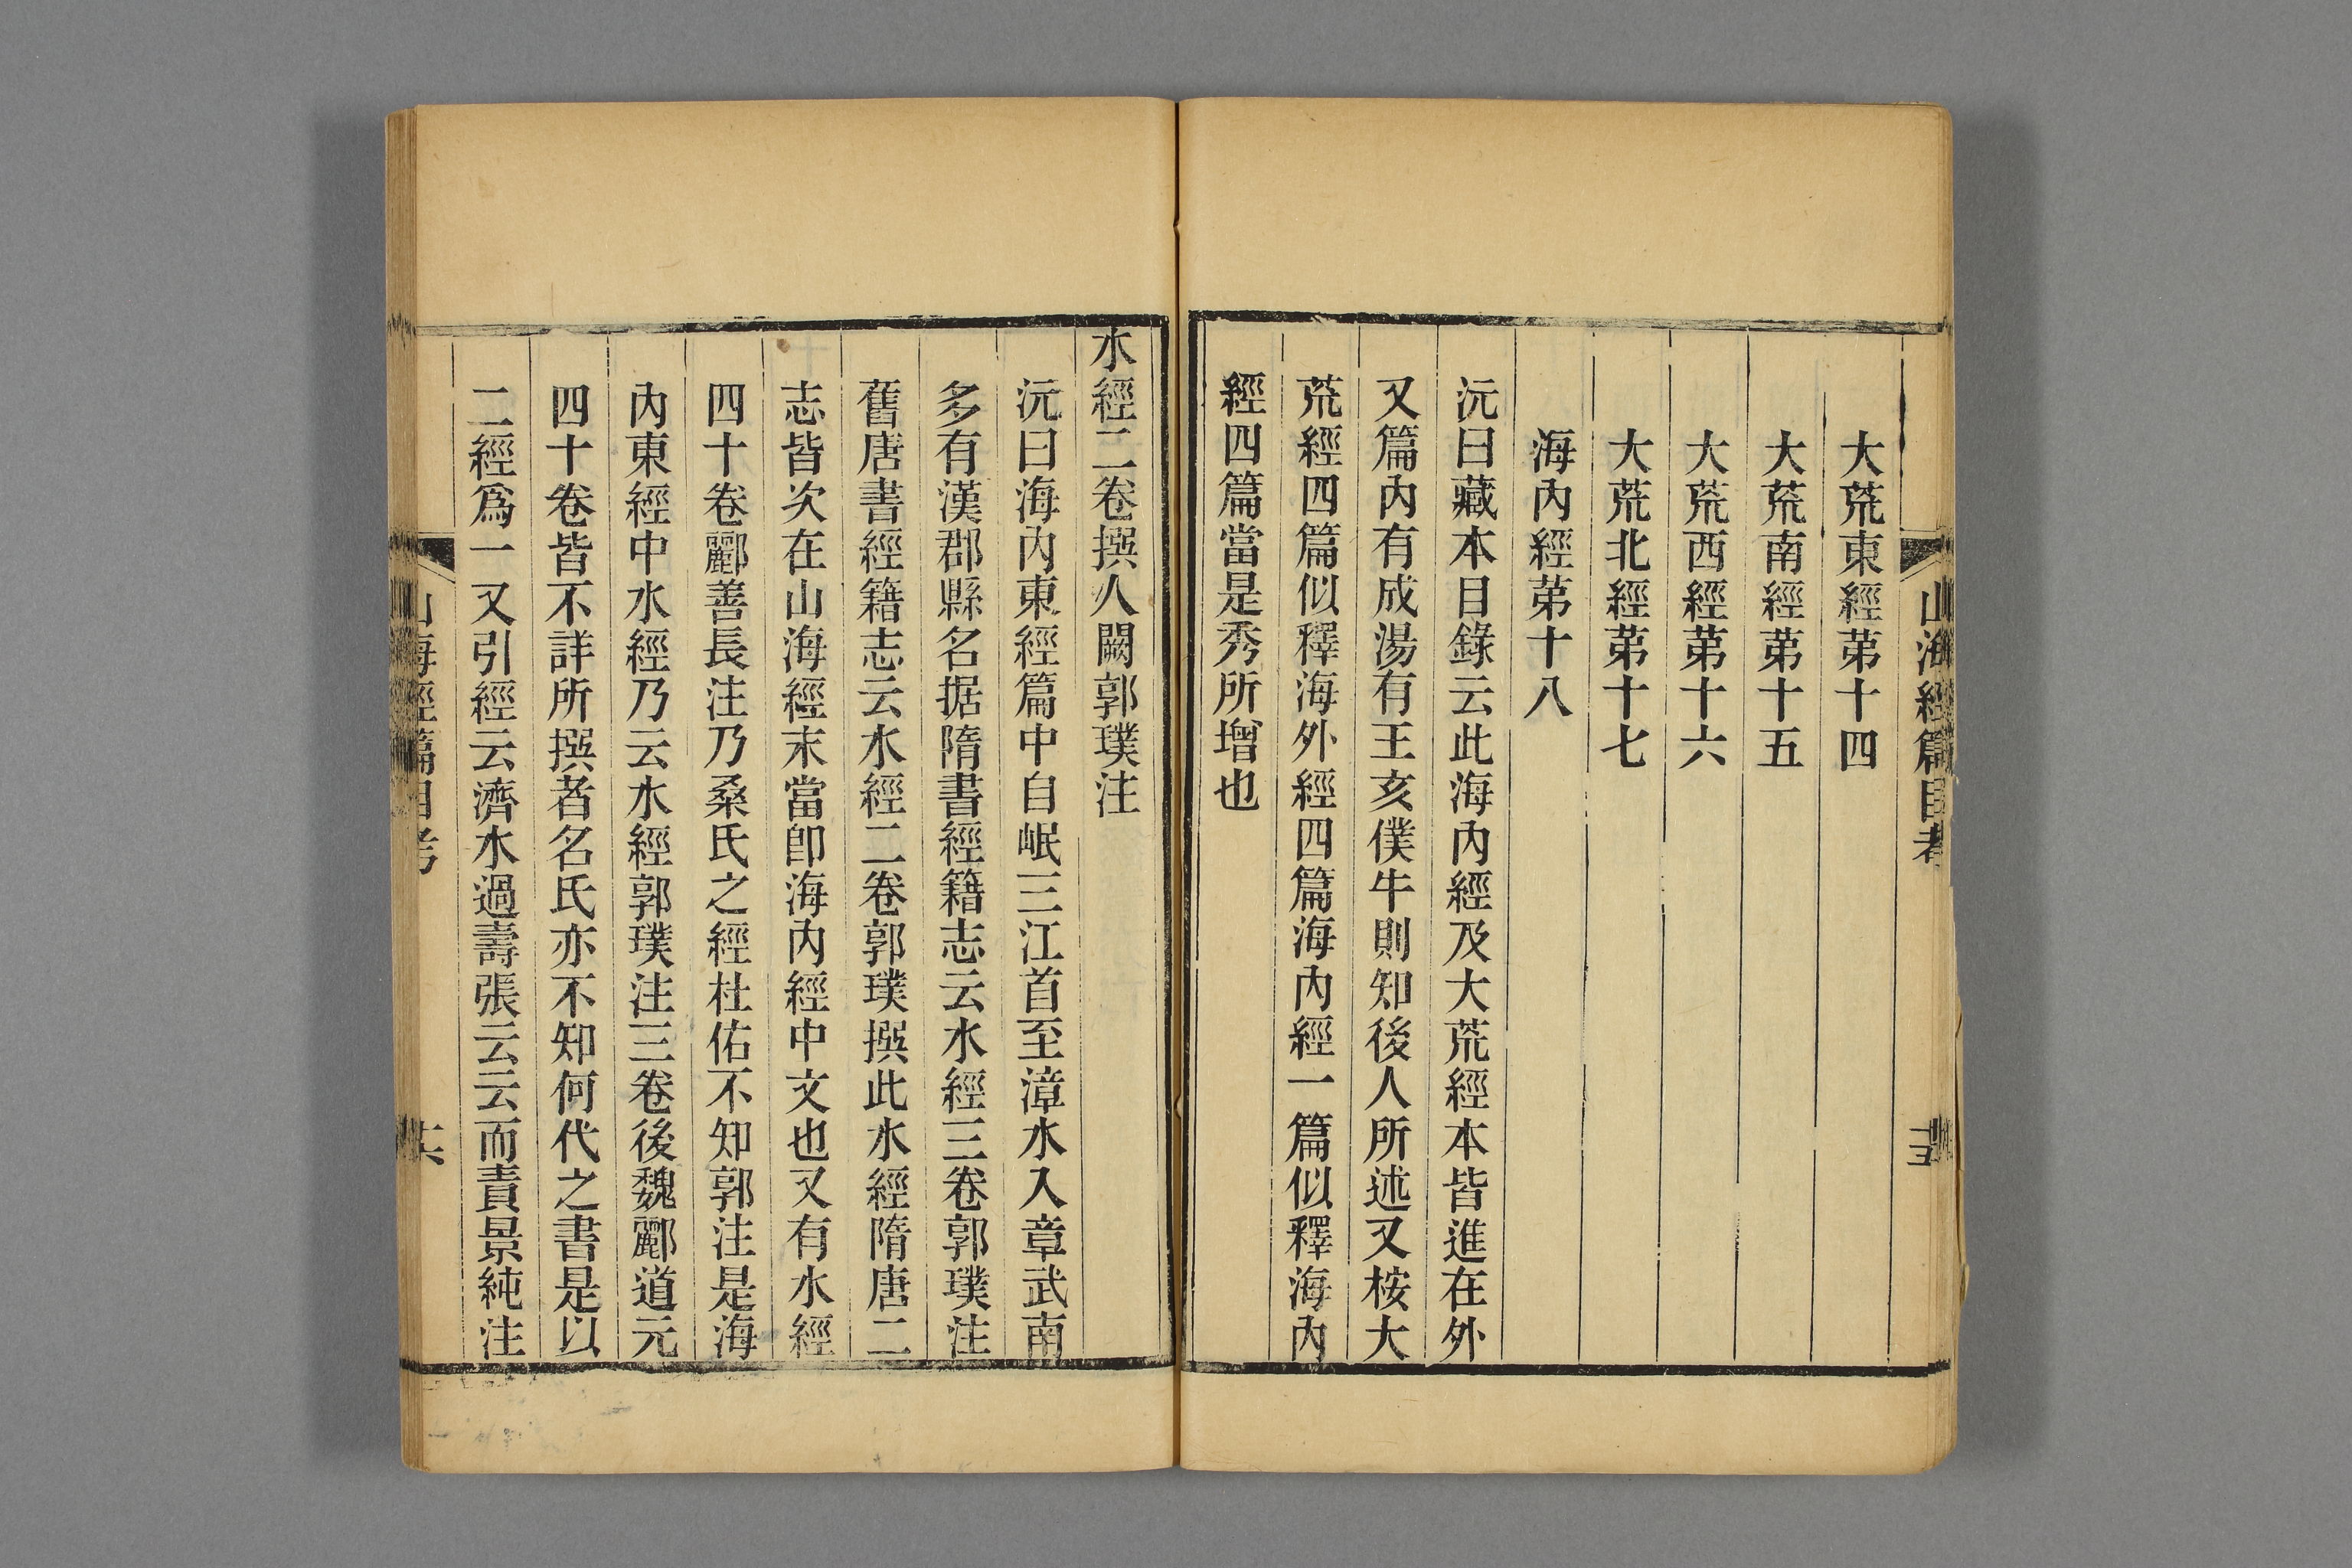 山海經篇目考
大荒東經苐十四
大荒南經苐十五
大荒西經苐十六
大荒北經苐十七
海內經苐十八
沅曰藏本目錄云此海內經及大荒經本皆進在外
又篇內有成湯有王亥僕牛則知後人所述又桉大
荒經四篇似釋海外經四篇海內經一篇似釋海內
經四篇當是秀所增也
水經二卷撰人闕郭璞注
沅曰海內東經篇中自岷三江首至漳水入章武南
多有漢郡縣名据隋書經籍志云水經三卷郭璞注
舊唐書經籍志云水經二卷郭璞撰此水經隋唐二
志皆次在山海經末當卽海內經中文也又有水經
四十卷酈善長注乃桑氏之經杜佑不知郭注是海
內東經中水經乃云水經郭璞注三卷後魏酈道元
四十卷皆不詳所撰者名氏亦不知何代之書是以
二經爲一又引經云濟水過壽張云云而責景純注
山海經篇目考